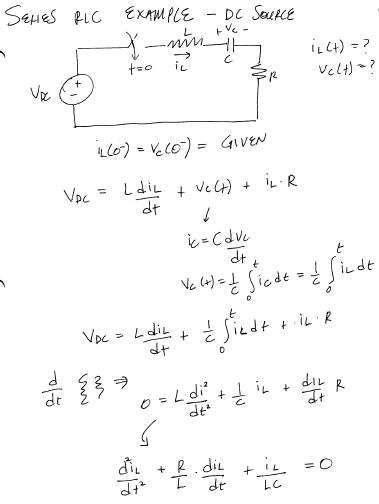 SERIES RLC EXAMPLE - DC SOURCE
L + Vc -
iL(t) = ?
t=0 iL C
Vc(t) = ?
R
VDC + -
iL(0-) = Vc(0-) = GIVEN
VDC = L diL/dt + Vc(t) + iL · R
↓
ic = C dVc/dt
Vc(t) = 1/C ∫₀ᵗ ic dt = 1/C ∫₀ᵗ iL dt
VDC = L diL/dt + 1/C ∫₀ᵗ iL dt + iL · R
d/dt { } ⇒ 0 = L di²/dt² + 1/C iL + diL/dt R
d²iL/dt² + R/L · diL/dt + iL/LC = 0